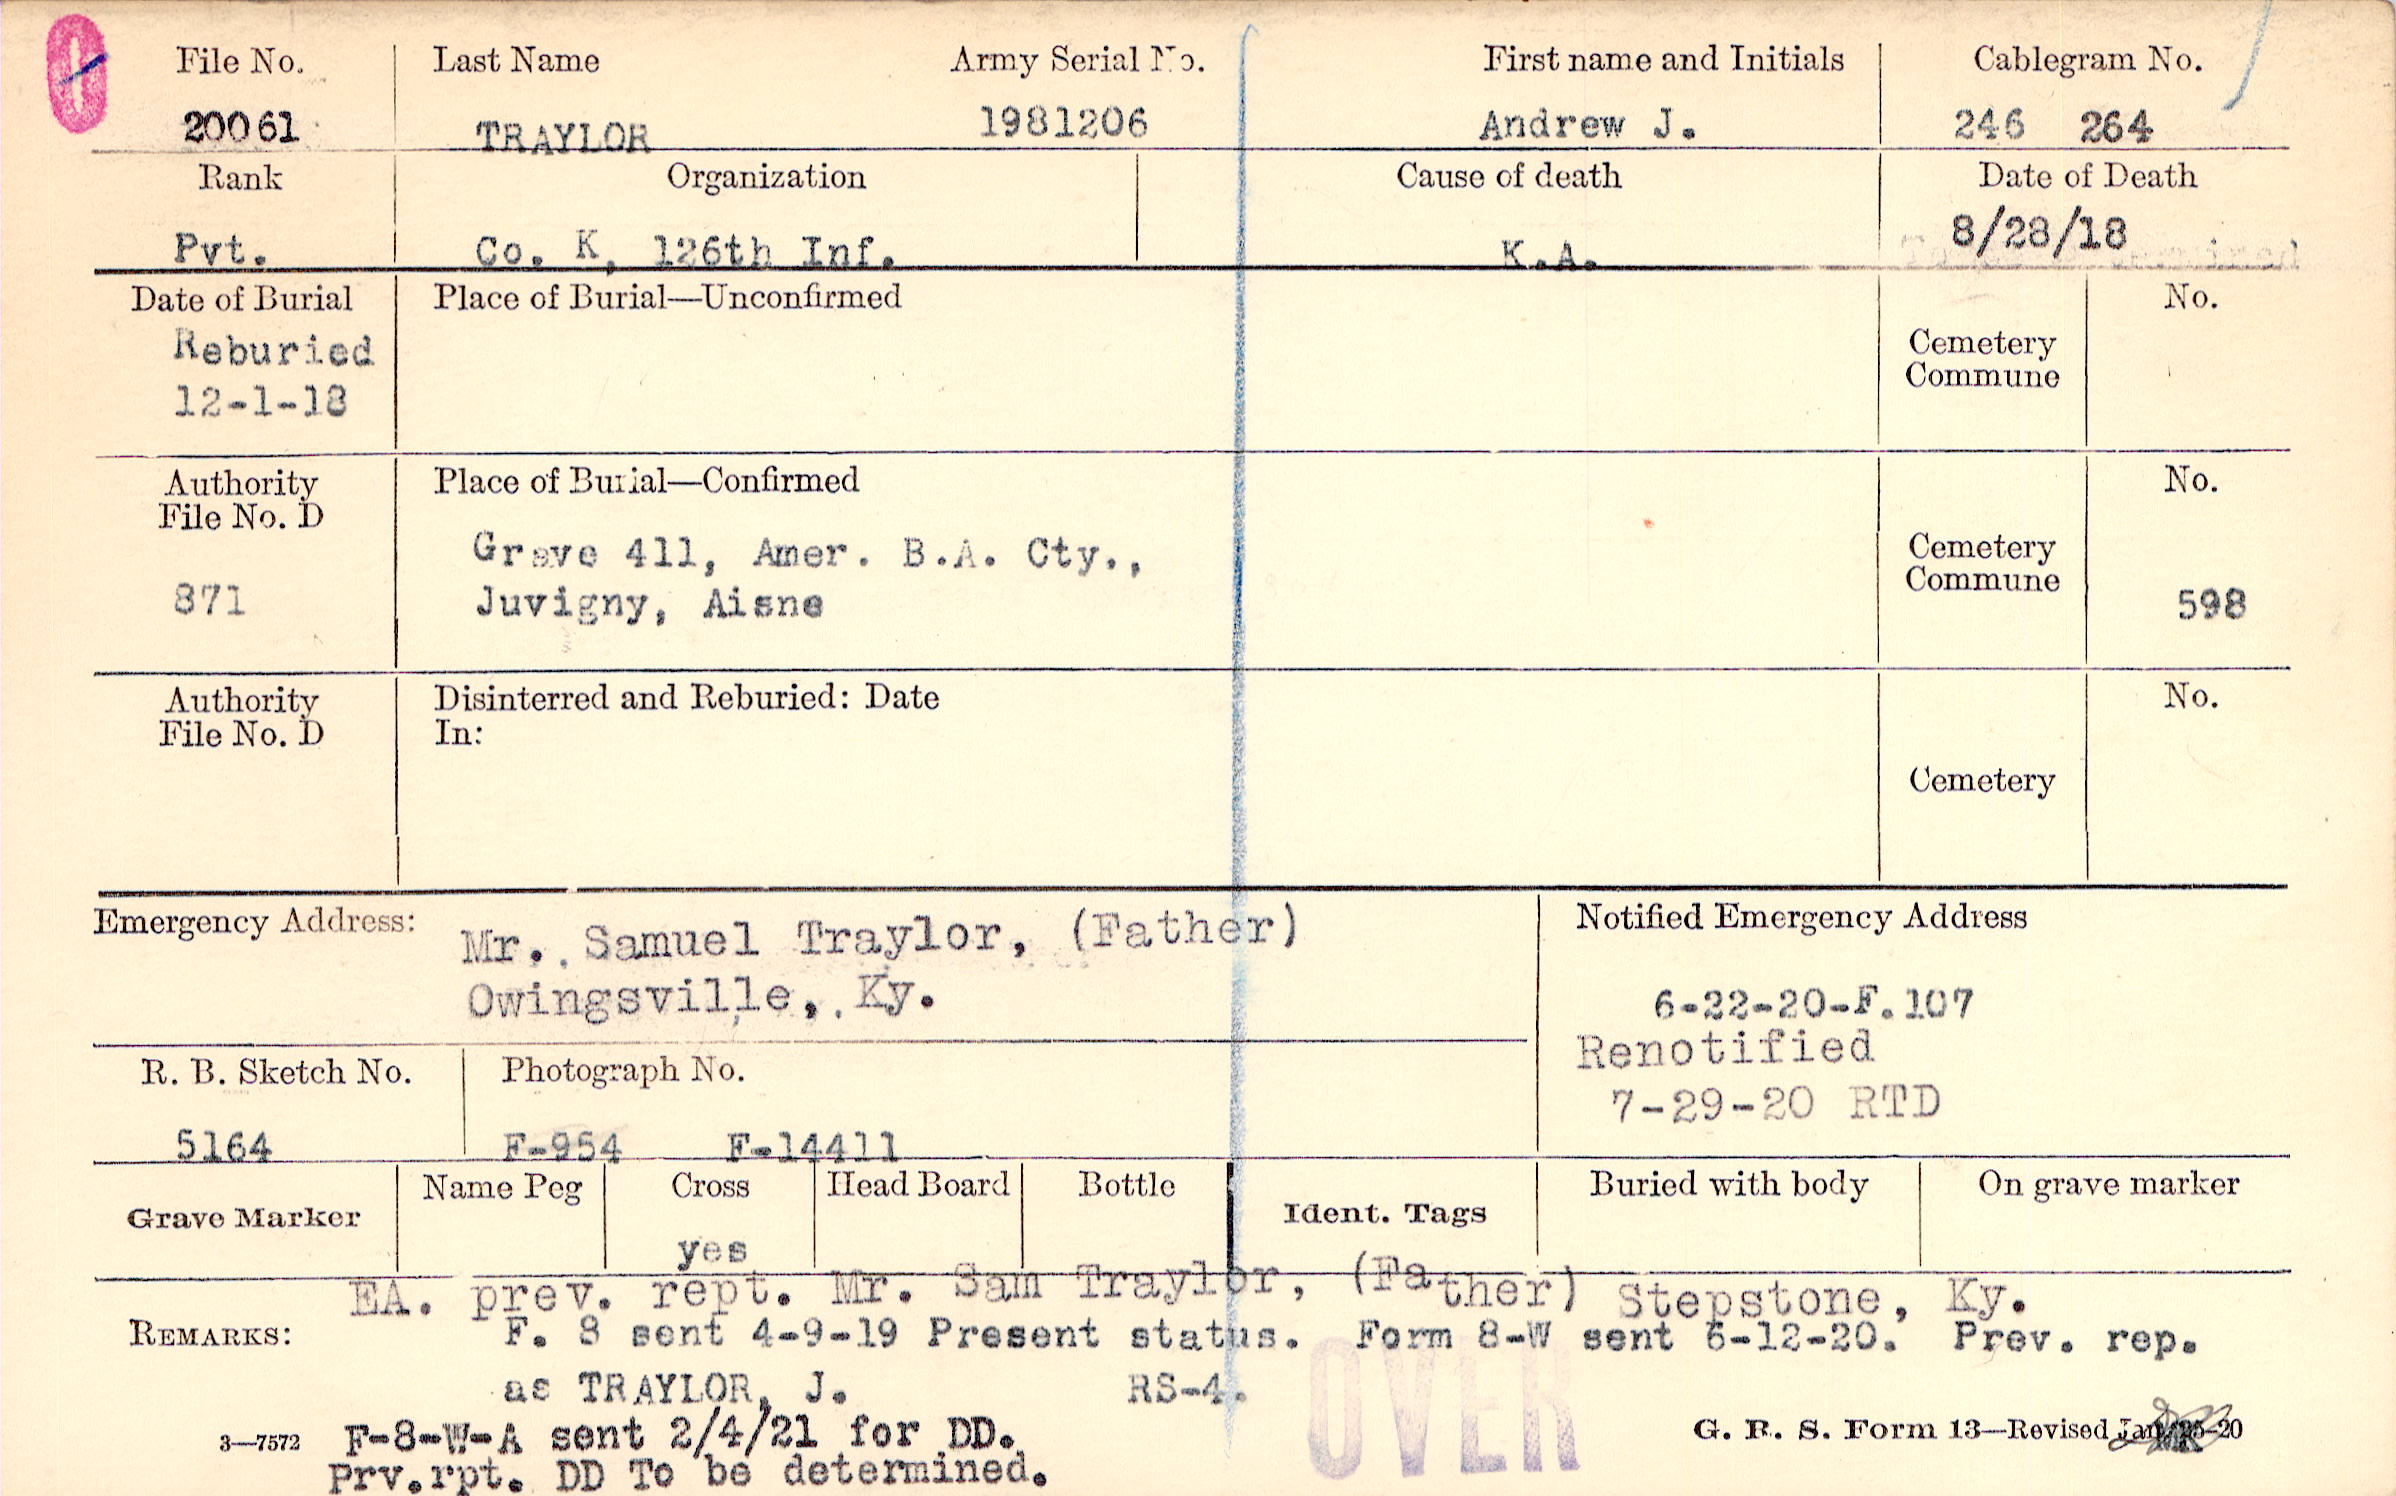 File No. Last Name Army Serial No. First name and Initials Cablegram No.
20061 TRAYLOR 1981206 Andrew J. 246 264
Rank Organization Cause of death Date of Death
Pvt. Co. K, 126th Inf. K.A. 8/28/18
Date of Burial Place of Burial—Unconfirmed No.
Reburied
12-1-18
Cemetery
Commune
Authority
File No. D
871
Place of Burial—Confirmed
Grave 411, Amer. B.A. Cty.,
Juvigny, Aisne
Cemetery
Commune
No.
598
Authority
File No. D
Disinterred and Reburied: Date
In:
Cemetery
No.
Emergency Address:
Mr. Samuel Traylor, (Father)
Owingsville, Ky.
Notified Emergency Address
6-22-20-F.107
Renotified
7-29-20 RTD
R. B. Sketch No. Photograph No.
5164 F-954 F-14411
Grave Marker Name Peg Cross Head Board Bottle Ident. Tags Buried with body On grave marker
yes
EA. prev. rept. Mr. Sam Traylor, (Father) Stepstone, Ky.
REMARKS: F. 8 sent 4-9-19 Present status. Form 8-W sent 6-12-20. Prev. rep.
as TRAYLOR, J. RS-4.
3—7572 F-8-W-A sent 2/4/21 for DD.
Prv.rpt. DD To be determined.
OVER
G. R. S. Form 13—Revised Jan -20